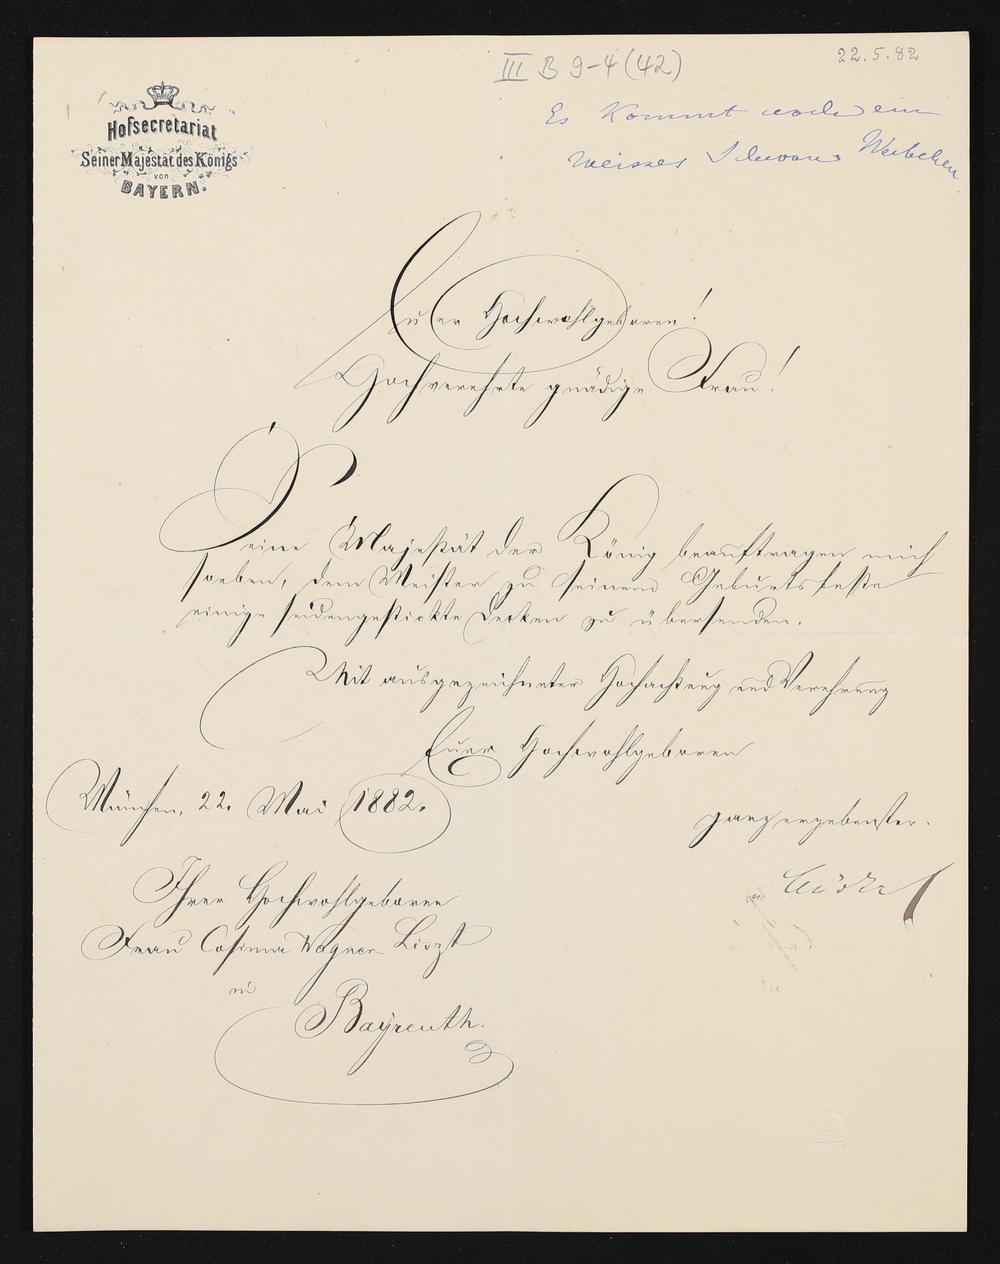 III B 9-4 (42)
22.5.82
Hofsecretariat
Seiner Majestät des Königs
von
BAYERN.
Es kommt noch ein
weisses Schwans Weibchen.
Euer Hochwohlgeboren!
Hochverehrte gnädige Frau!
Seine Majestät der König beauftragen mich
soeben, dem Meister zu seinem Geburtsfeste
einige seidengestickte Decken zu übersenden.
Mit ausgezeichneter Hochachtung und Verehrung
Euer Hochwohlgeboren
München, 22. Mai 1882.
ganz ergebenster.
Ihrer Hochwohlgeboren
Frau Cosima Wagner Liszt
in
Bayreuth.